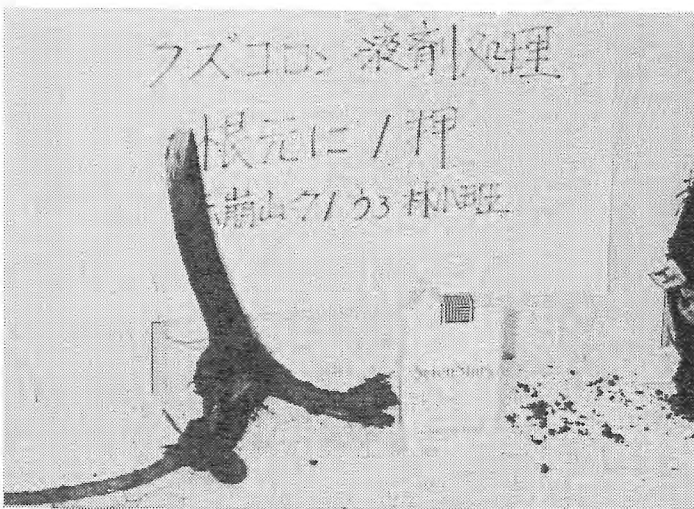 クズコロン 液剤処理
根元に1押
大崩山 71 う3 林小班
Seven Stars